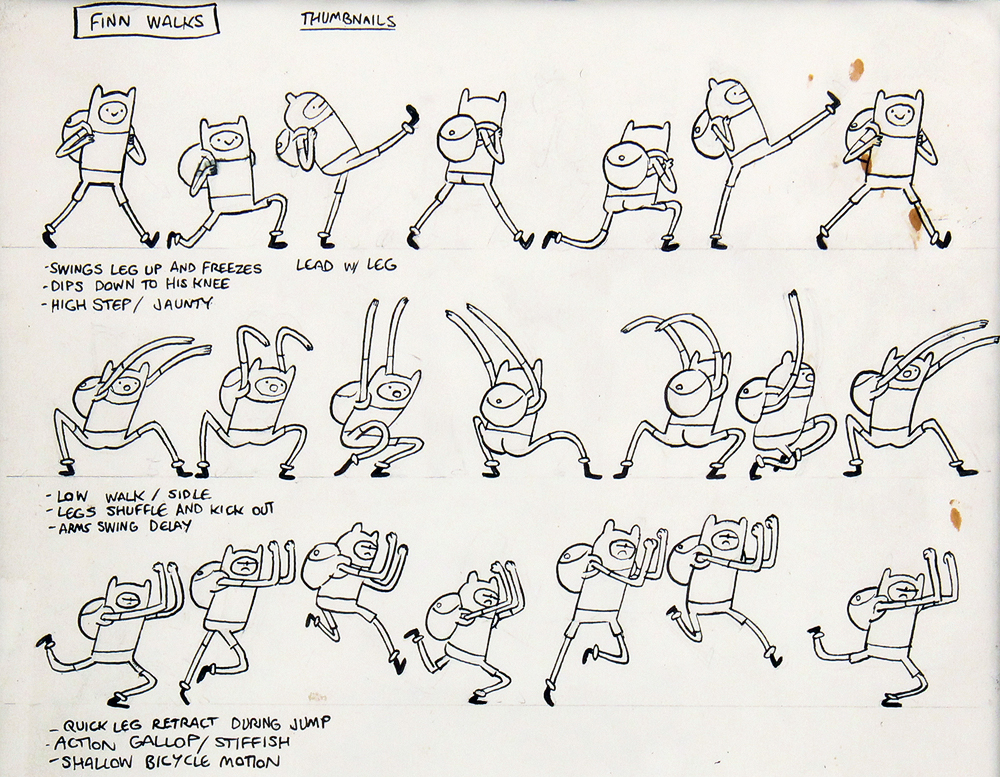 FINN WALKS
THUMBNAILS
-SWINGS LEG UP AND FREEZES
LEAD W/ LEG
-DIPS DOWN TO HIS KNEE
-HIGH STEP/ JAUNTY
- LOW WALK / SIDLE
- LEGS SHUFFLE AND KICK OUT
-ARMS SWING DELAY
- QUICK LEG RETRACT DURING JUMP
-ACTION GALLOP/ STIFFISH
-SHALLOW BICYCLE MOTION